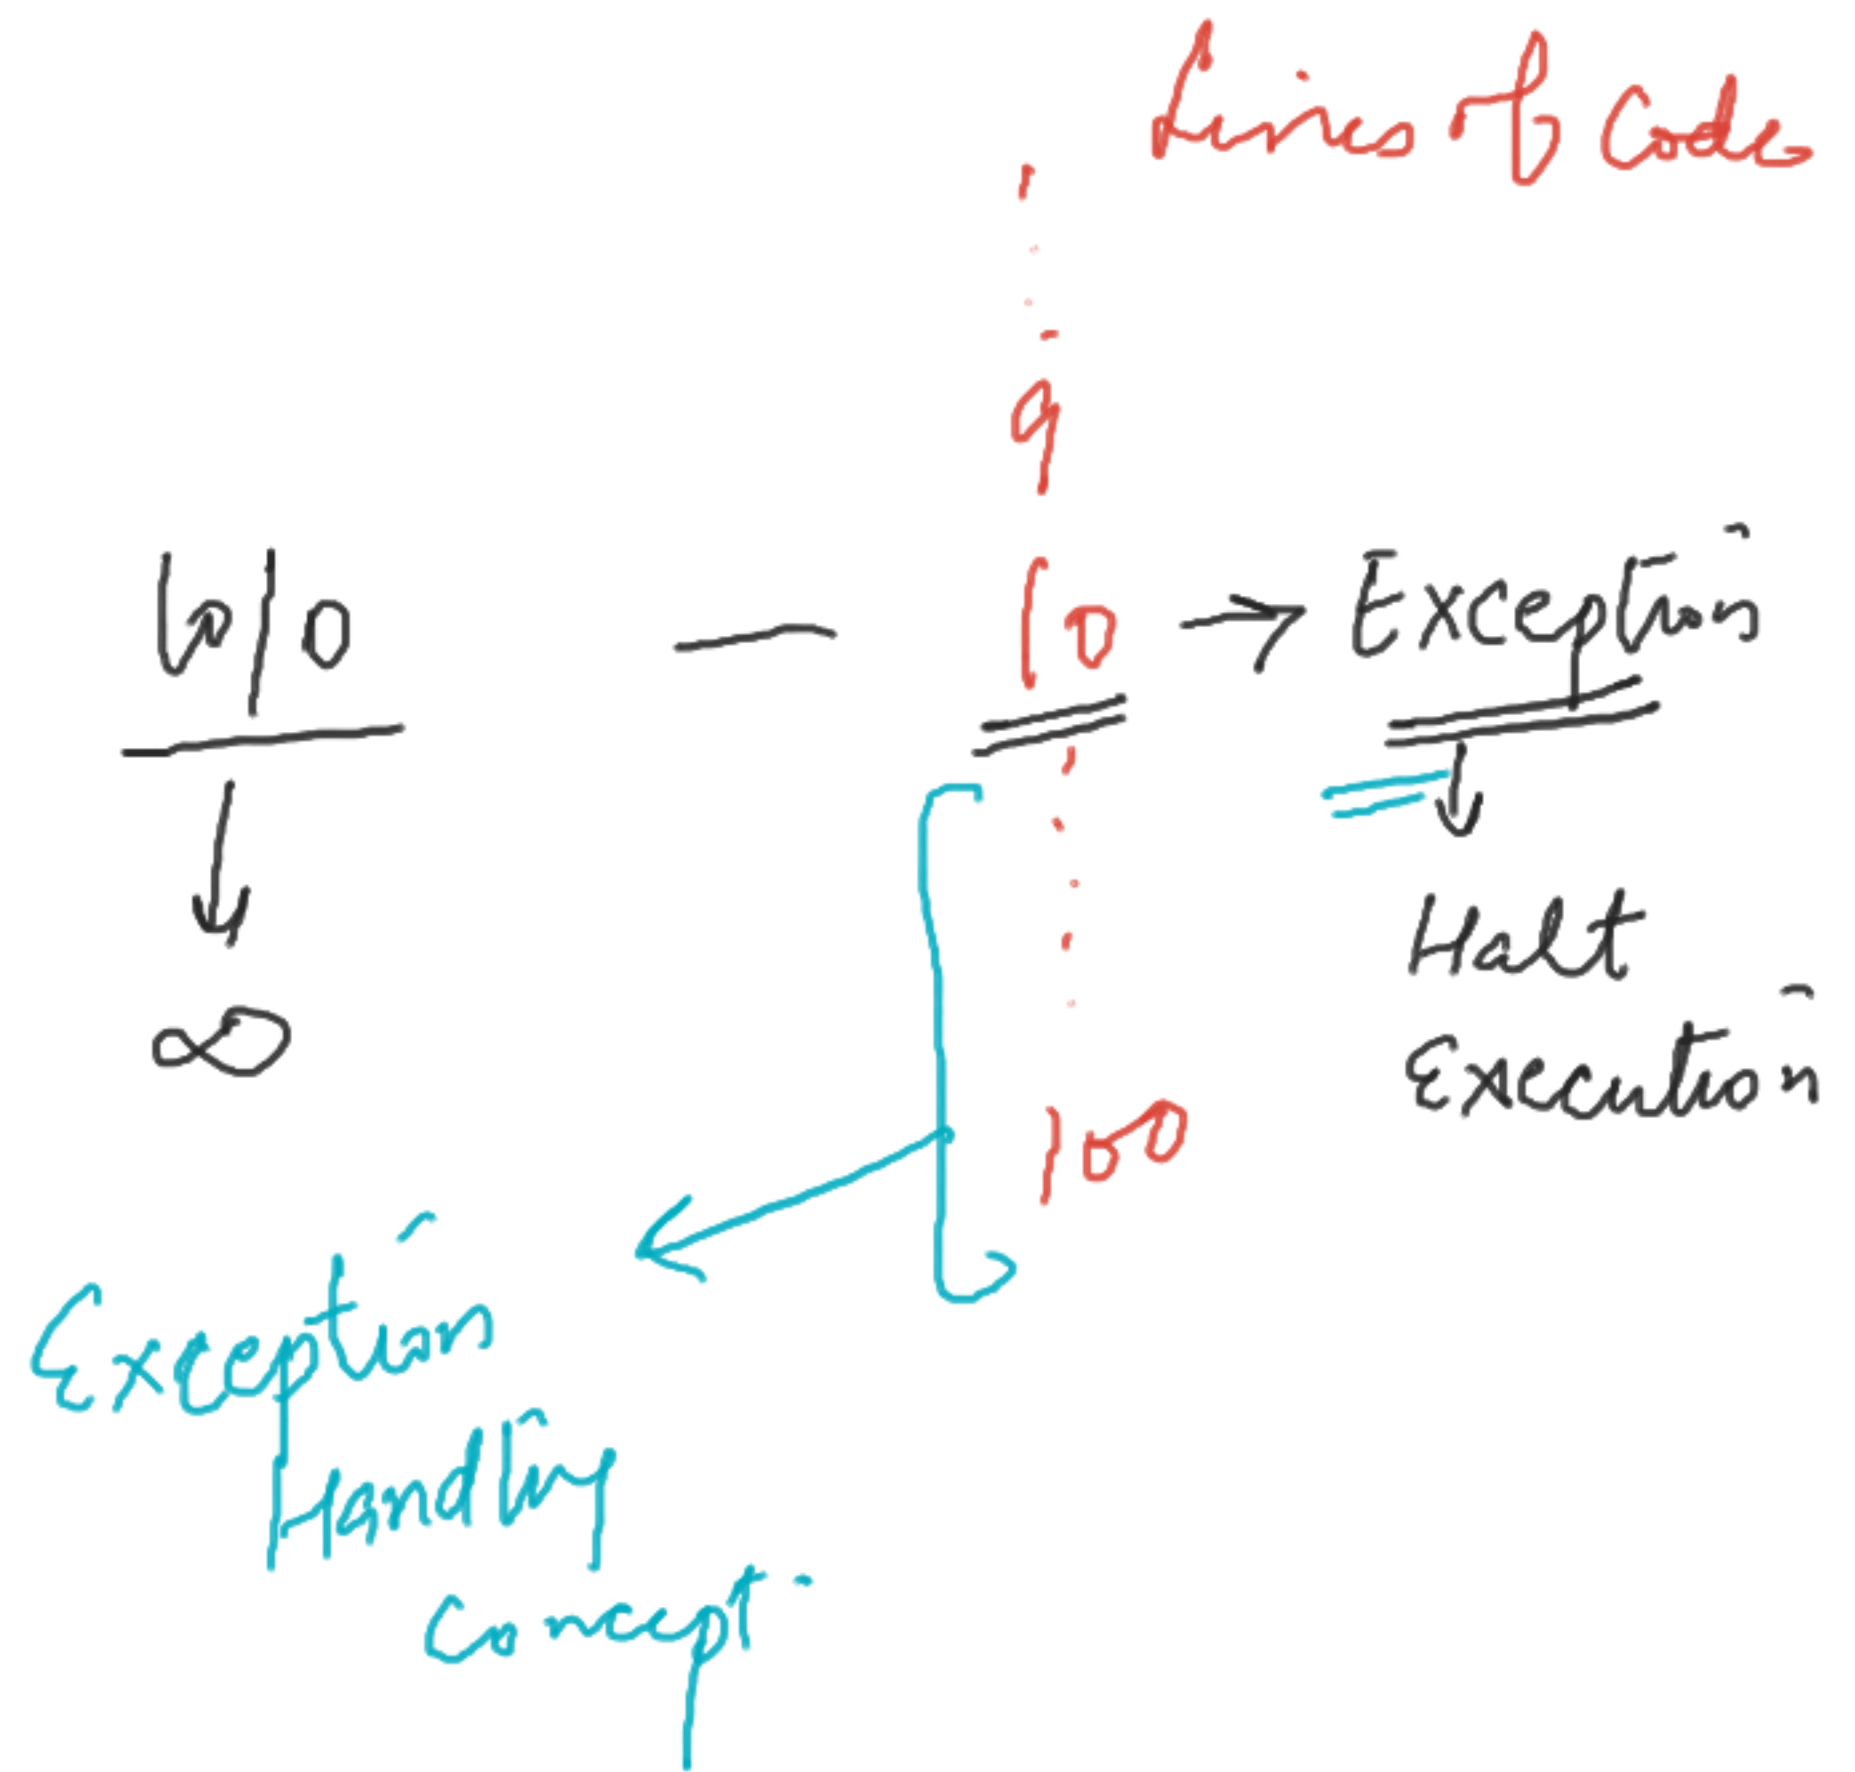 Lines of Code
1
9
10/0 — 10 → Exception
Halt
∞
Execution
100
Exception
Handling
Concept